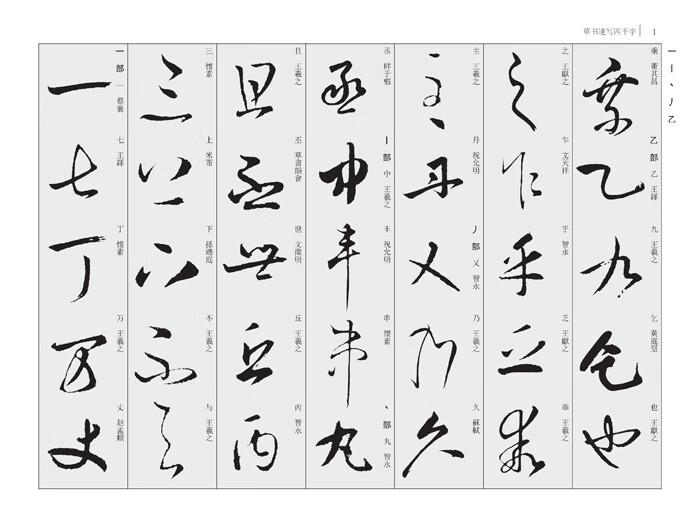 草书速写四千字 1
一丨丶丿乙
一部 一 蔡襄
七 王鐸
丁 懷素
万 王羲之
丈 赵孟頫
三 懷素
上 米芾
下 孫過庭
不 王羲之
与 王羲之
且 王羲之
丕 草書韻會
世 文徵明
丘 王羲之
丙 智永
丞 鲜于樞
丨部 中 王羲之
丰 祝允明
串 懷素
丶部 丸 智永
主 王羲之
丹 祝允明
丿部 乂 智永
乃 王羲之
久 蘇軾
之 王獻之
乍 文天祥
乎 智永
乏 王獻之
乖 王羲之
乘 董其昌
乙部 乙 王鐸
九 王羲之
乞 黄庭堅
也 王獻之